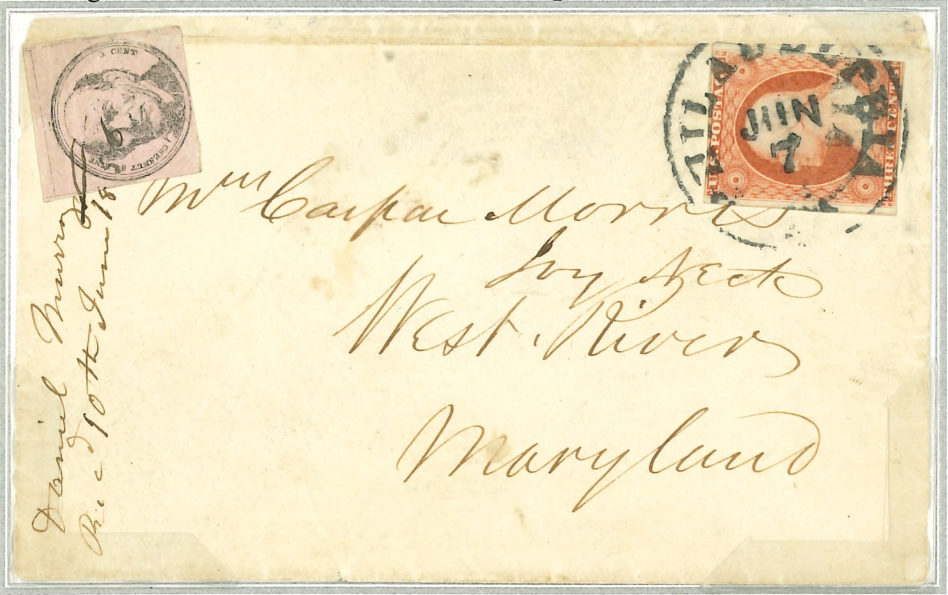 1 CENT
CHESNUT
6
U.S. POSTAGE
THREE CENTS
JUN
7
Mrs Caspar Morris
Ivy Neck
West River
Maryland
Daniel Murray
Rec'd 10th June 18